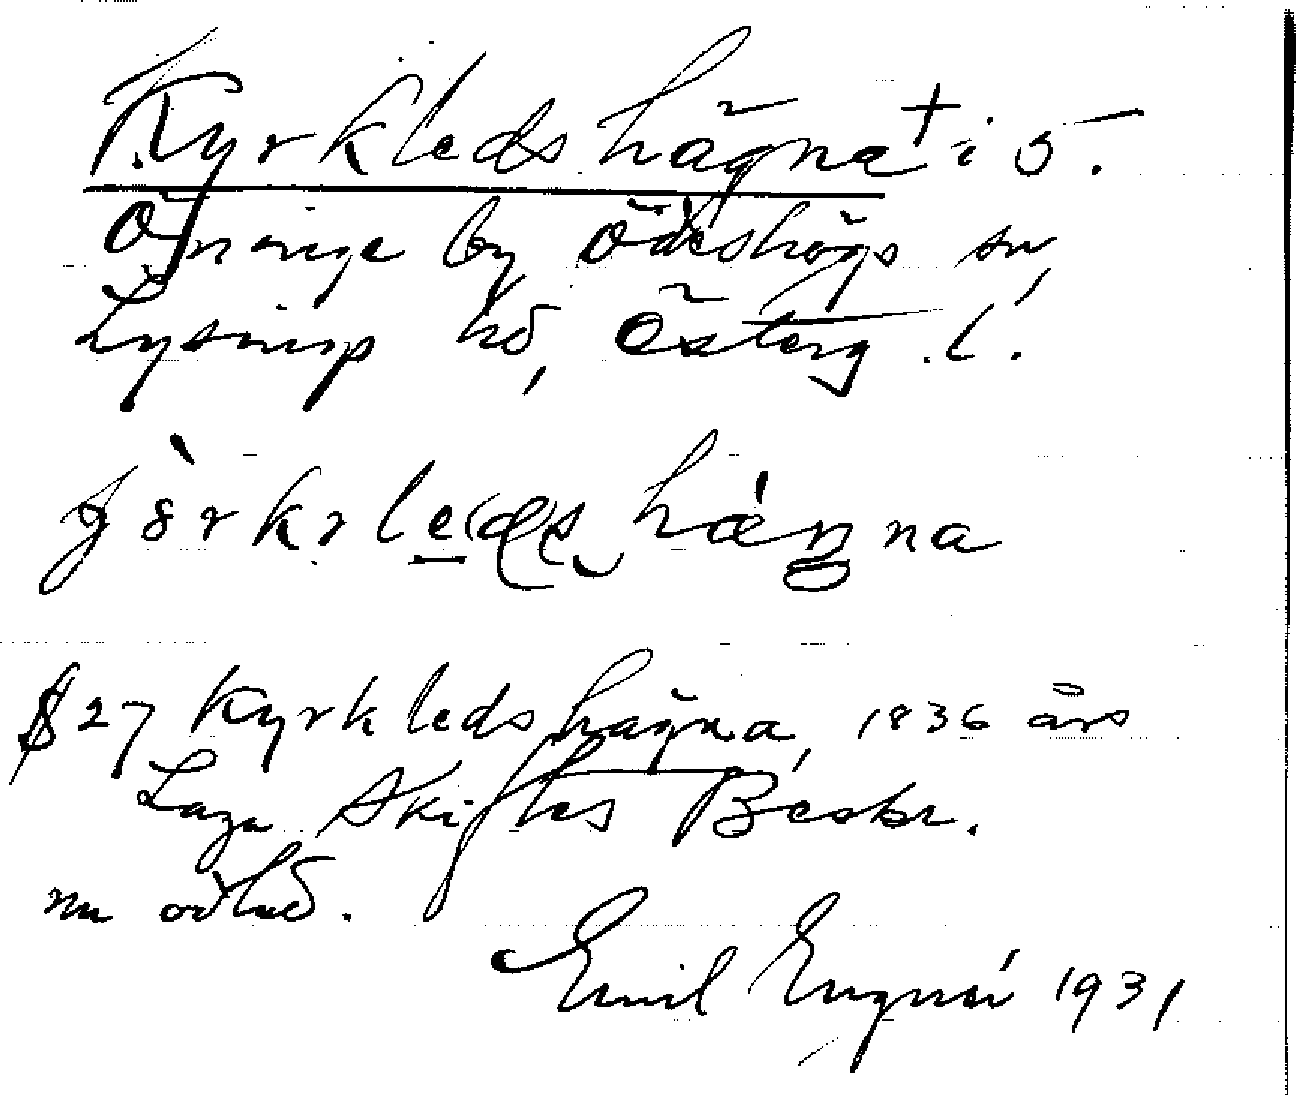 Kyrkledshägna + i ö.
Öninge by Ödeshögs sn,
Lysings hd, Österg. l.
jörkrleds hägna
§ 27 Kyrkledshägna, 1836 års
Laga Skiftes Beskr.
nu odlad.
Emil Engnér 1931